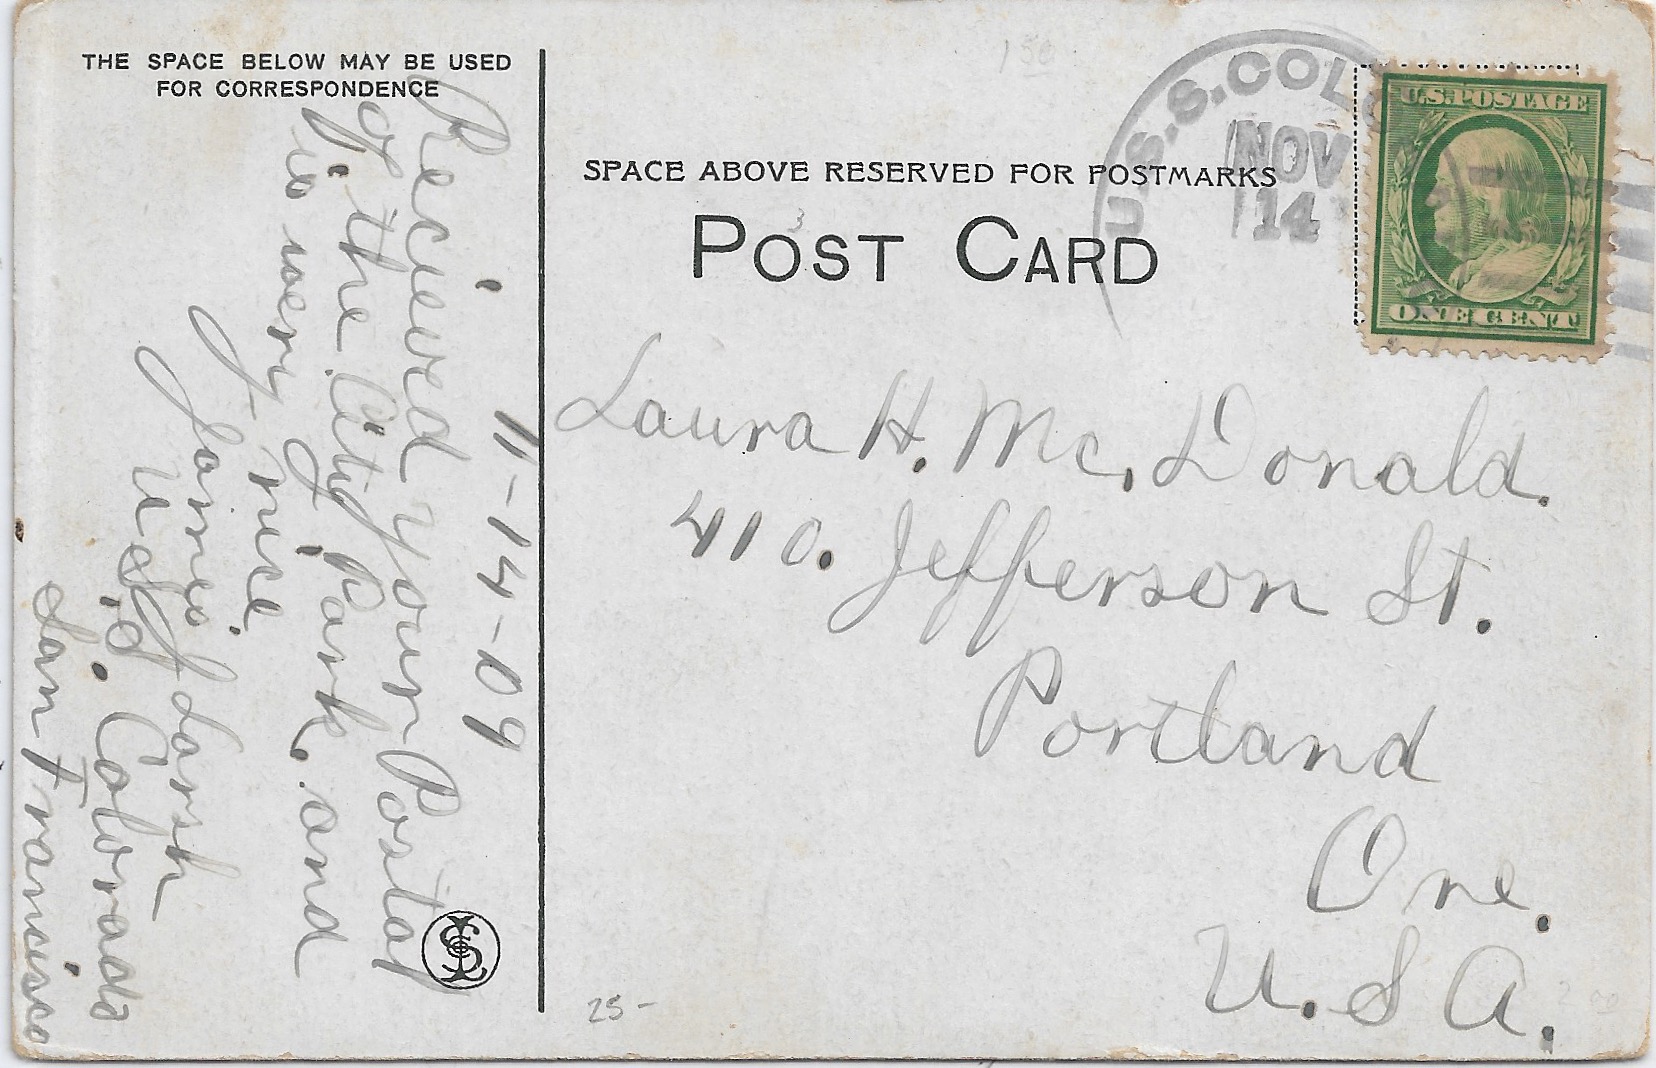 THE SPACE BELOW MAY BE USED
FOR CORRESPONDENCE
11-14-09
Recieved your Postal
of the City Park. and
is very nice.
James J Larsh
U.S.S. Colorado
San Francisco
U.S.S. COLO
NOV
14
U.S. POSTAGE
ONE CENT
150
SPACE ABOVE RESERVED FOR POSTMARKS
3
POST CARD
Laura H. Mc. Donald.
410. Jefferson St.
Portland
Ore.
U.S.A.
25-
2 00